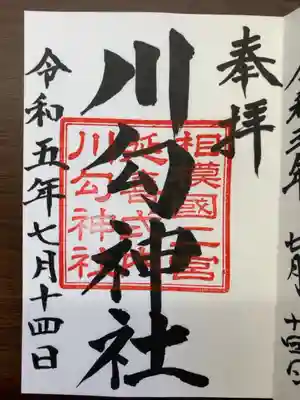 奉拝
川勾神社
相模國二宮
延喜式内
川勾神社
令和五年七月十四日